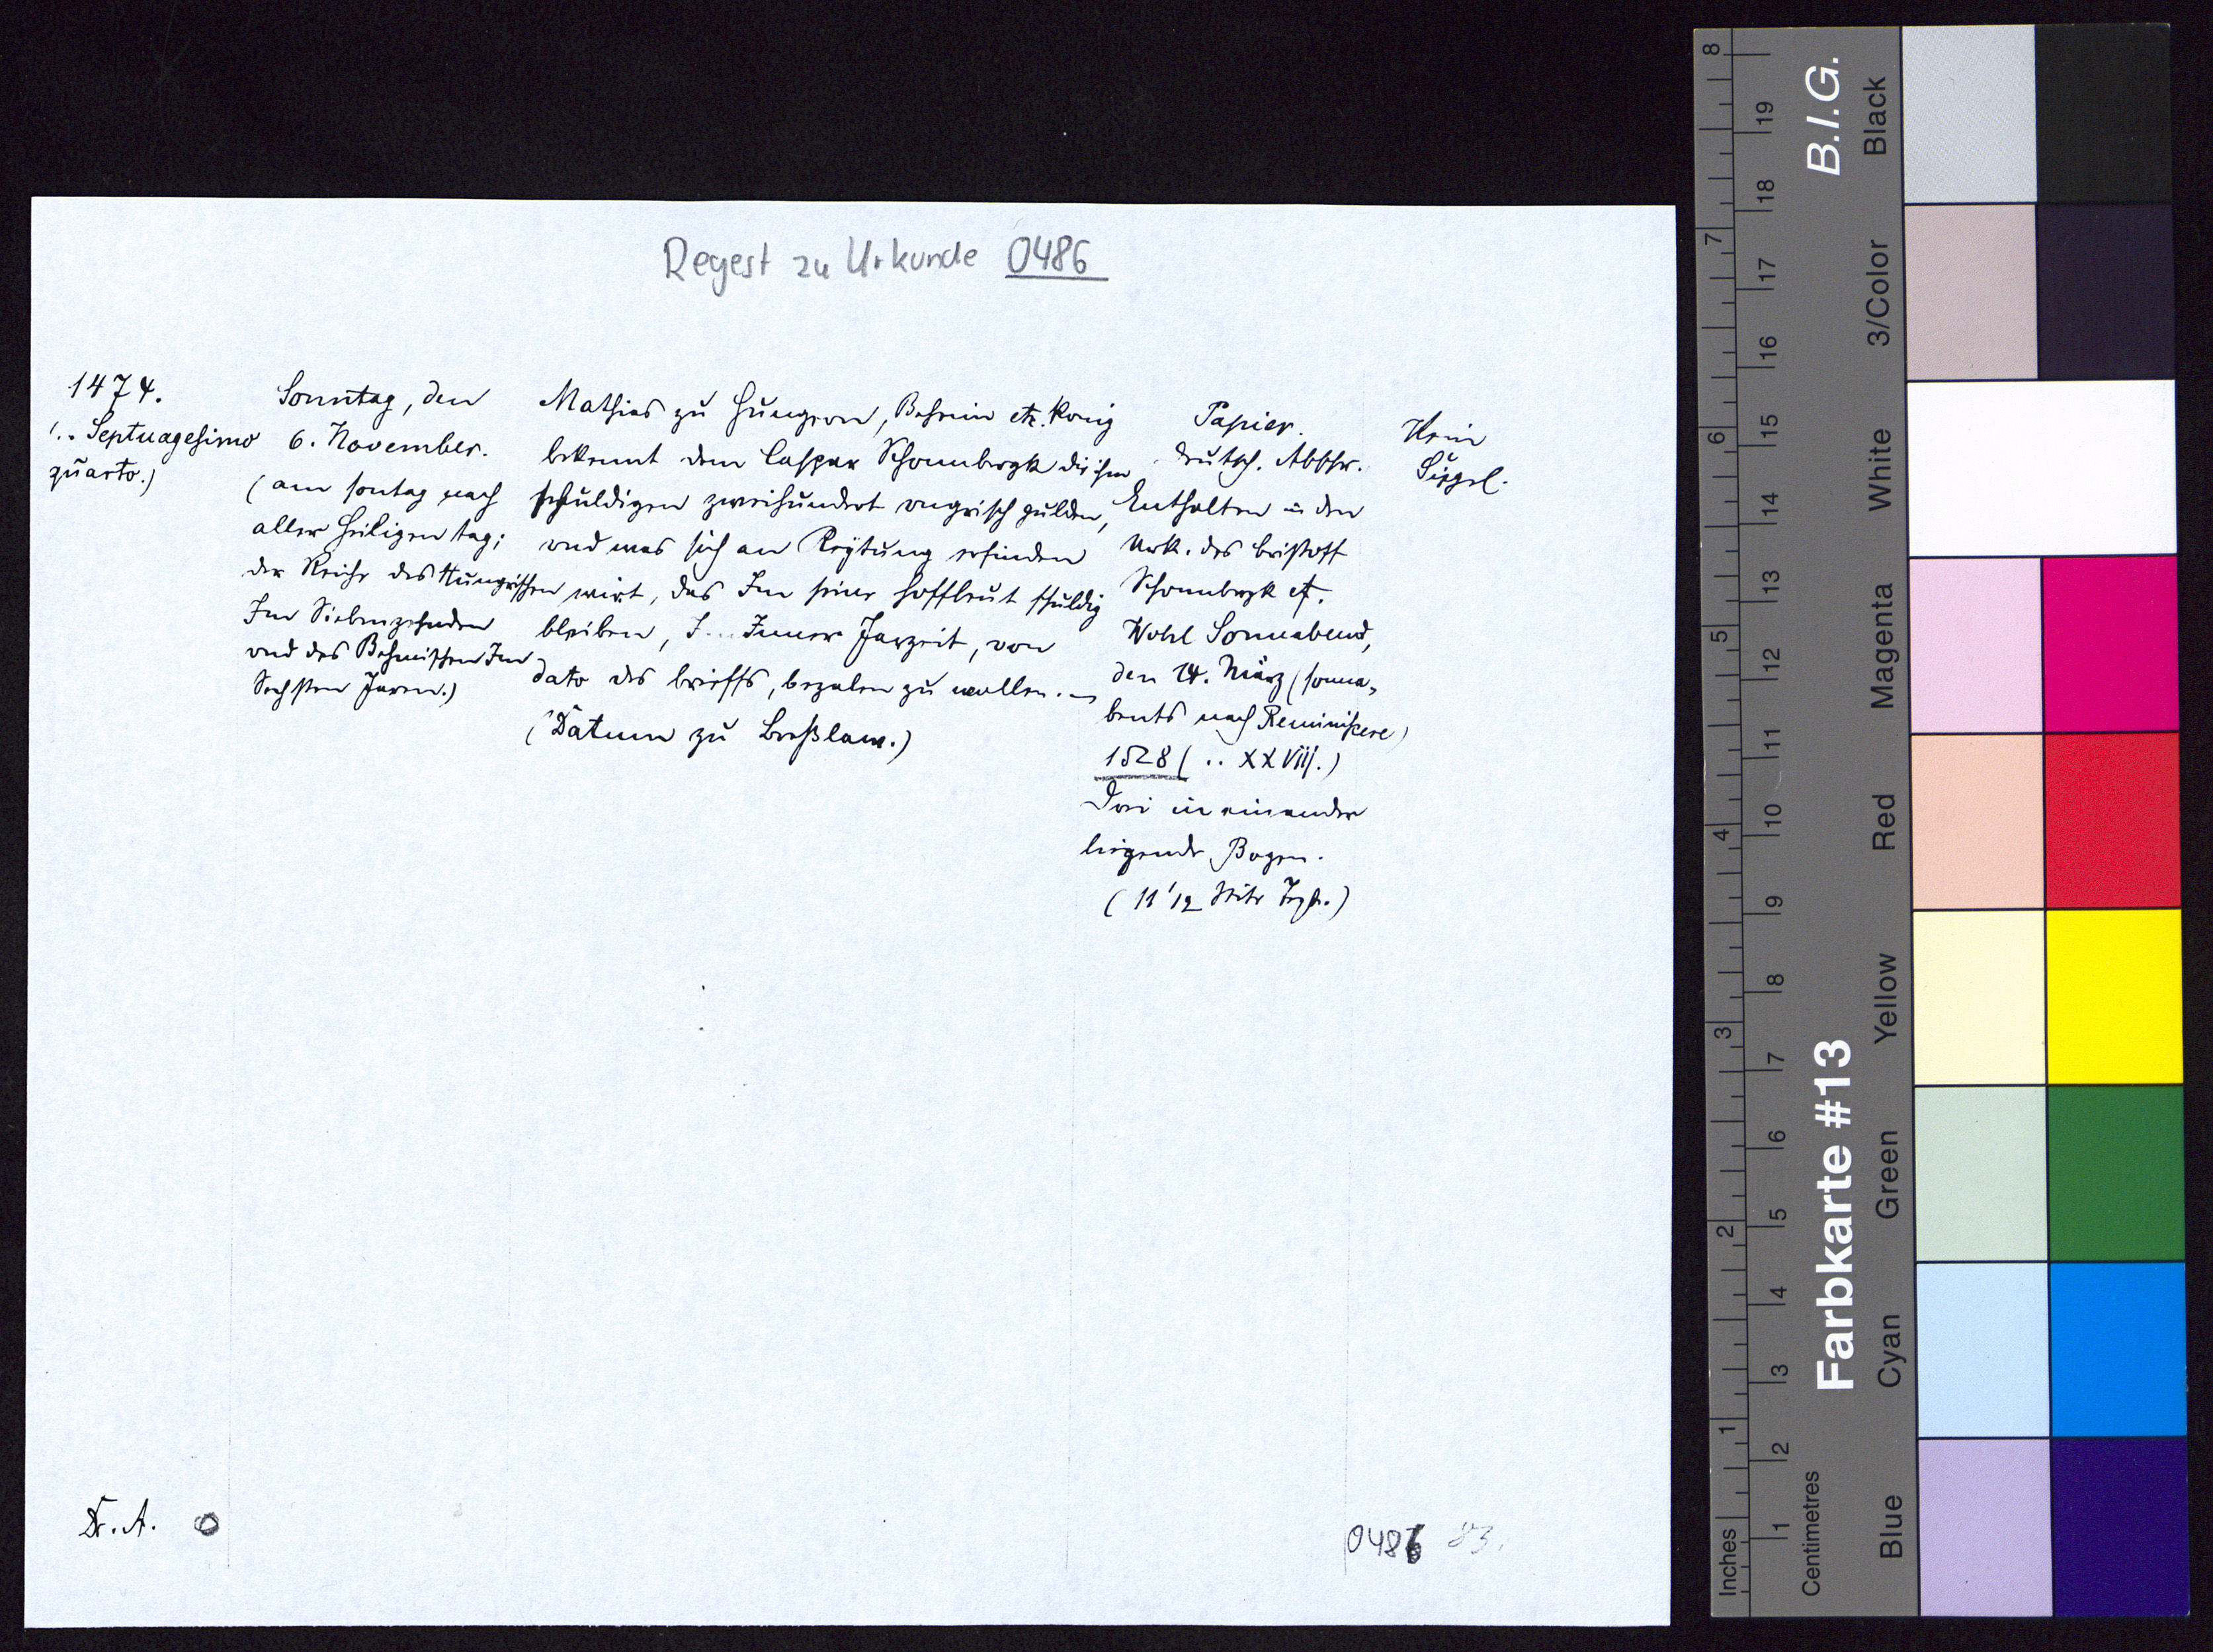 Regest zu Urkunde 0486
1474.
(.. Septuagesimo
quarto.)
Sonntag, den
6. November.
(am sontag nach
aller Heiligen tag;
der Reiche des Hungrischen
Im Siebenzehenden
vnd des Behmischen Im
Sechsten Jaren.)
Mathias zu Hungern, Beheim etc. Konig
bekennt dem Caspar Schonnbergk die ihm
schuldigen zweihundert vngrisch gulden,
vnd was sich an Raytung erfinden
wirt, das Im seiner Hoffleut schuldig
bleiben, J... Inner Jarzeit, von
dato des brieffs, bezalen zu wollen.
(Datum zu Breßlaw.)
Papier.
Deutsch. Abschr.
Enthalten in den
Urk. des Cristoff
Schonnbergk etc.
Wohl Sonnabend,
den 14. März (sonna-
bents nach Reminiscere)
1528 (.. XXViij.)
Drei in einander
liegende Bogen.
(11/12 Seite)
Kein
Siegel.
Dr. A. 0
0486 83.
B.I.G.
Farbkarte #13
Inches
Centimetres
1 2 3 4 5 6 7 8
1 2 3 4 5 6 7 8 9 10 11 12 13 14 15 16 17 18 19
Blue
Cyan
Green
Yellow
Red
Magenta
White
3/Color
Black